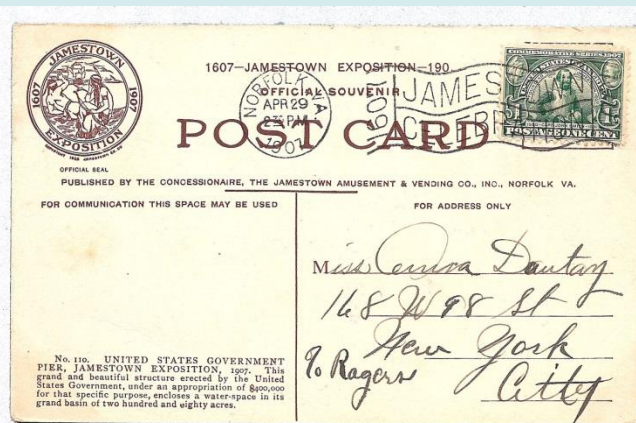 JAMESTOWN
1607 1907
EXPOSITION
OFFICIAL SEAL
1607—JAMESTOWN EXPOSITION—190
OFFICIAL SOUVENIR
POST CARD
NORFOLK, VA.
APR 29
PM
1907
1607
JAMESTOWN
COMMEMORATIVE SERIES 1907
POSTAGE ONE CENT
PUBLISHED BY THE CONCESSIONAIRE, THE JAMESTOWN AMUSEMENT & VENDING CO., INC., NORFOLK VA.
FOR COMMUNICATION THIS SPACE MAY BE USED
FOR ADDRESS ONLY
Miss
168 W 98 St
New York
City
c/o Rogers
No. 110. UNITED STATES GOVERNMENT
PIER, JAMESTOWN EXPOSITION, 1907. This
grand and beautiful structure erected by the United
States Government, under an appropriation of $400,000
for that specific purpose, encloses a water-space in its
grand basin of two hundred and eighty acres.